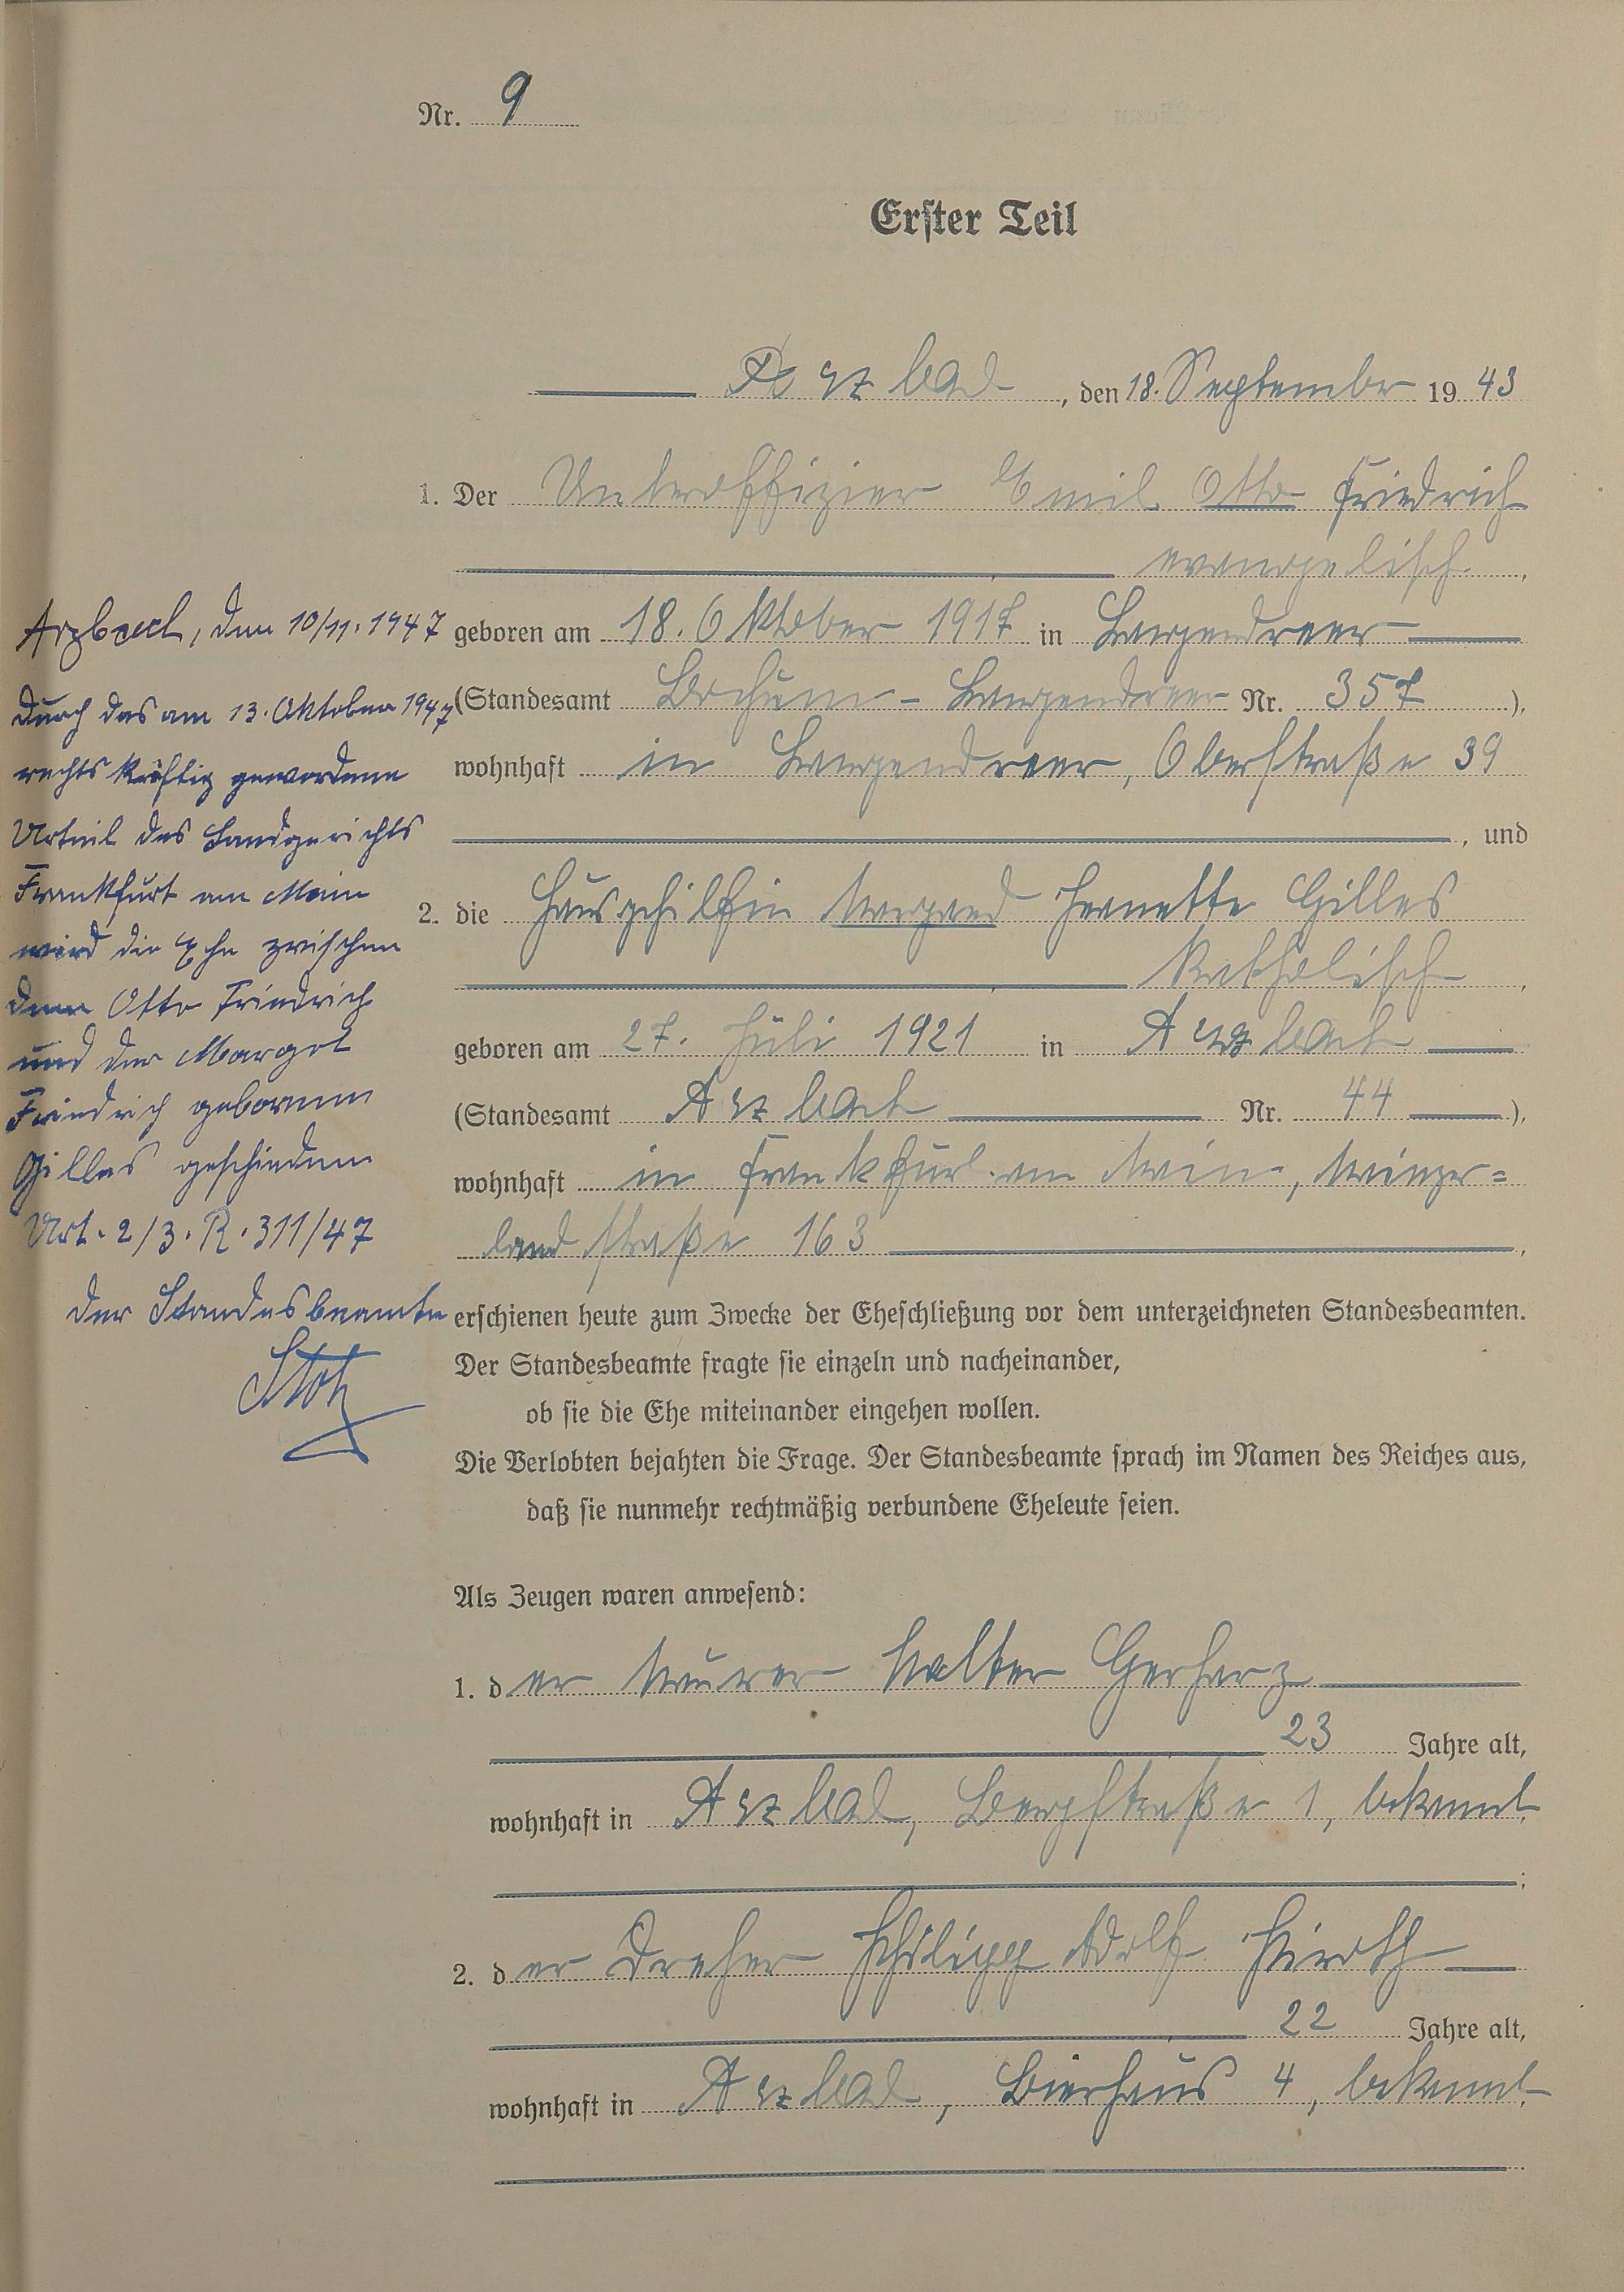 Nr. 9
Erster Teil
Arzbach, den 18. September 1943
1. Der Unteroffizier Emil Otto Friedrich
evangelisch,
geboren am 18. Oktober 1917 in Langendreer
(Standesamt Bochum-Langendreer Nr. 357),
wohnhaft in Langendreer, Oberstraße 39
, und
2. die Hausgehilfin Margot Jeanette Gilles
katholisch,
geboren am 27. Juli 1921 in Arzbach
(Standesamt Arzbach Nr. 44),
wohnhaft in Frankfurt am Main, Mainzer=
landstraße 163,
erschienen heute zum Zwecke der Eheschließung vor dem unterzeichneten Standesbeamten.
Der Standesbeamte fragte sie einzeln und nacheinander,
ob sie die Ehe miteinander eingehen wollen.
Die Verlobten bejahten die Frage. Der Standesbeamte sprach im Namen des Reiches aus,
daß sie nunmehr rechtmäßig verbundene Eheleute seien.
Als Zeugen waren anwesend:
1. der Maurer Walter Gerharz
23 Jahre alt,
wohnhaft in Arzbach, Bergstraße 1, bekannt
;
2. der Dreher Philipp Adolf
22 Jahre alt,
wohnhaft in Arzbach, Bierhaus 4, bekannt.
Arzbach, den 10/11. 1947
Durch das am 13. Oktober 1947
rechtskräftig gewordene
Urteil des Landgerichts
Frankfurt am Main
wird die Ehe zwischen
dem Otto Friedrich
und der Margot
Friedrich geborenen
Gilles geschieden
Urt. 2/3. R. 311/47
Der Standesbeamte